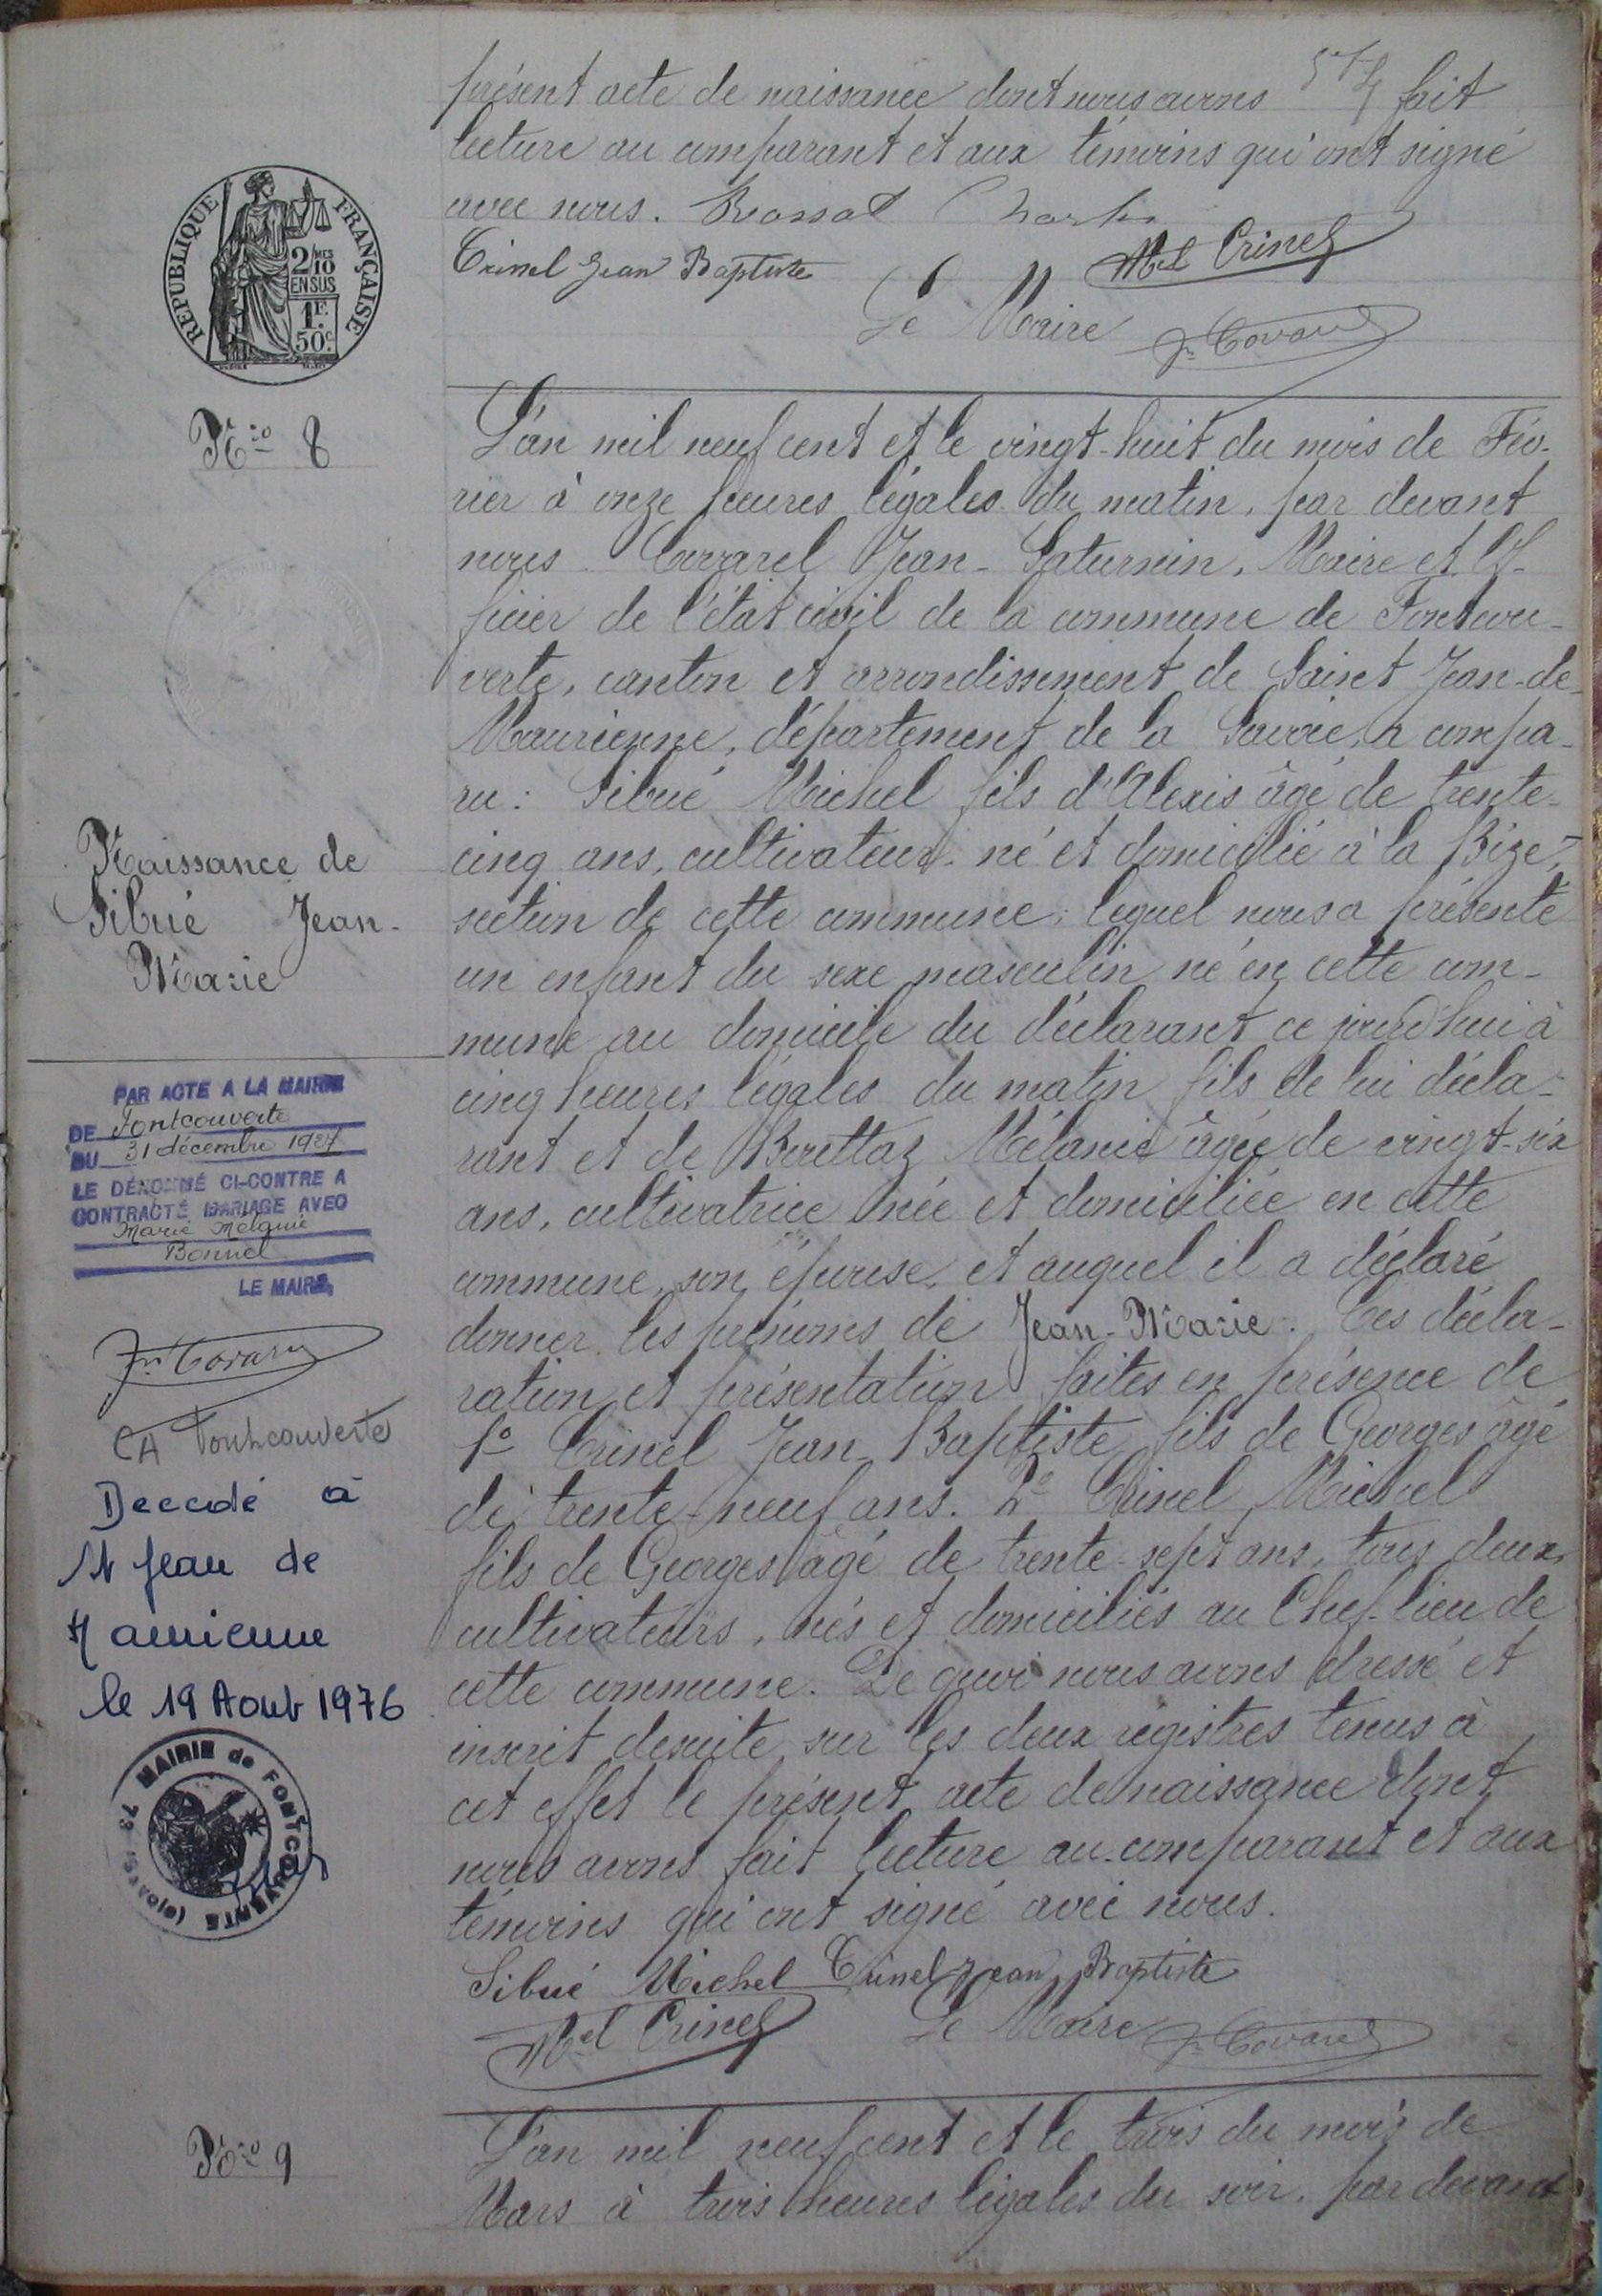 présent acte de naissance dont nous avons fait
lecture au comparant et aux témoins qui ont signé
avec nous.
Crinel Jean Baptiste Mel Crinel
Le Maire Jn Covarel
RÉPUBLIQUE FRANÇAISE
2/10 MES
EN SUS
1F.
50c.
No 8
L'an mil neuf cent et le vingt-huit du mois de Fév-
rier à onze heures légales du matin, par devant
nous Covarel Jean-Saturnin, Maire et Of-
ficier de l'état civil de la commune de Fontcou-
verte, canton et arrondissement de Saint Jean-de-
Maurienne, département de la Savoie, a compa-
ru: Sibué Michel fils d'Alexis âgé de trente-
cinq ans, cultivateur, né et domicilié à la Bize,
section de cette commune, lequel nous a présenté
un enfant du sexe masculin né en cette com-
mune au domicile du déclarant ce jourd'hui à
cinq heures légales du matin fils de lui décla-
rant et de Mélanie âgée de vingt-six
ans, cultivatrice née et domiciliée en cette
commune, son épouse, et auquel il a déclaré
donner les prénoms de Jean-Marie. Ces décla-
ration et présentation faites en présence de
1o Crinel Jean-Baptiste fils de Georges âgé
de trente-neuf ans. 2o Crinel Michel
fils de Georges âgé de trente-sept ans, tous deux
cultivateurs, nés et domiciliés au Chef-lieu de
cette commune. De quoi nous avons dressé et
inscrit desuite sur les deux registres tenus à
cet effet le présent acte de naissance dont
nous avons fait lecture au comparant et aux
témoins qui ont signé avec nous.
Sibué Michel Crinel Jean Baptiste
Mel Crinel Le Maire Jn Covarel
Naissance de
Sibué Jean-
Marie
PAR ACTE A LA MAIRIE
DE Fontcouverte
DU 31 décembre 1927
LE DÉNOMMÉ CI-CONTRE A
CONTRACTÉ MARIAGE AVEC
Marie
Bonnel
LE MAIRE,
Jn Covarel
CA Fontcouverte
Decedé à
St Jean de
Maurienne
le 19 Aout 1976
MAIRIE de FONTCOUVERTE (Savoie) 73
No 9
L'an mil neuf cent et le trois du mois de
Mars à trois heures légales du soir, par devant